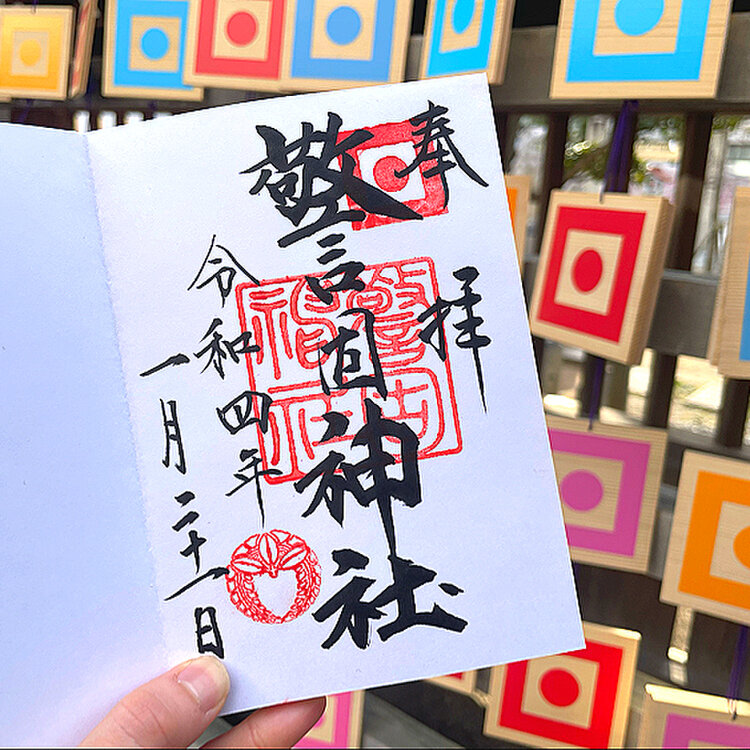 奉拝
警固神社
令和四年
一月二十一日